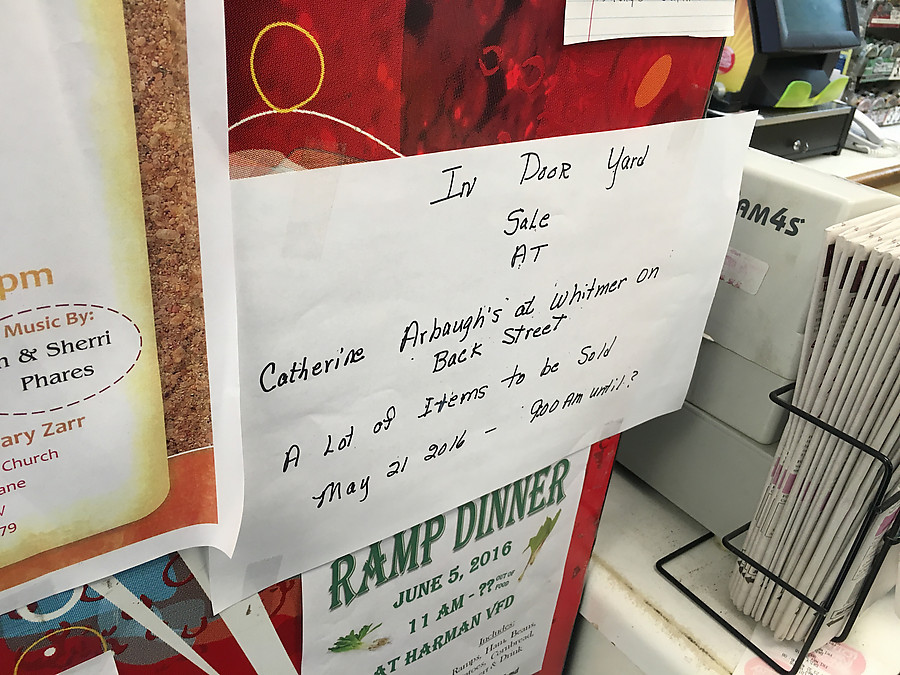 In Door Yard
Sale
AT
Catherine Arbaugh's at Whitmer on
Back Street
A Lot of Items to be Sold
May 21 2016 - 9:00 Am until?
pm
Music By:
& Sherri
Phares
ary Zarr
Church
ane
79
RAMP DINNER
JUNE 5, 2016
11 AM - ?? OUT OF
FOOD
AT HARMAN VFD
Includes:
Ramps, Hank Beans,
Cornbread,
& Drink
AM4S